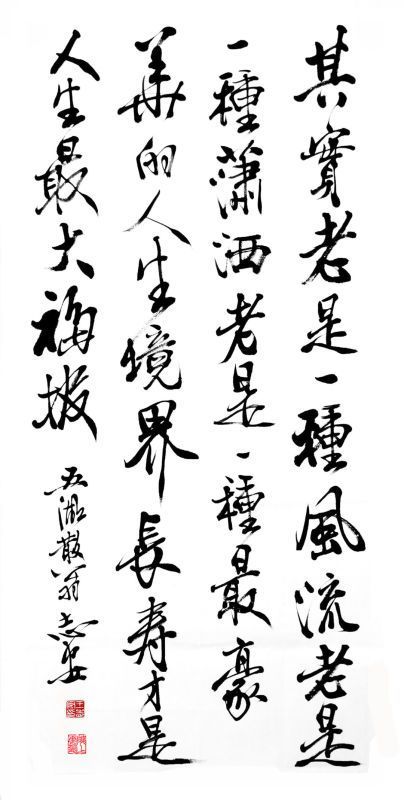 其實老是一種風流老是
一種瀟洒老是一種最豪
華的人生境界長寿才是
人生最大福报
五湖散翁志安